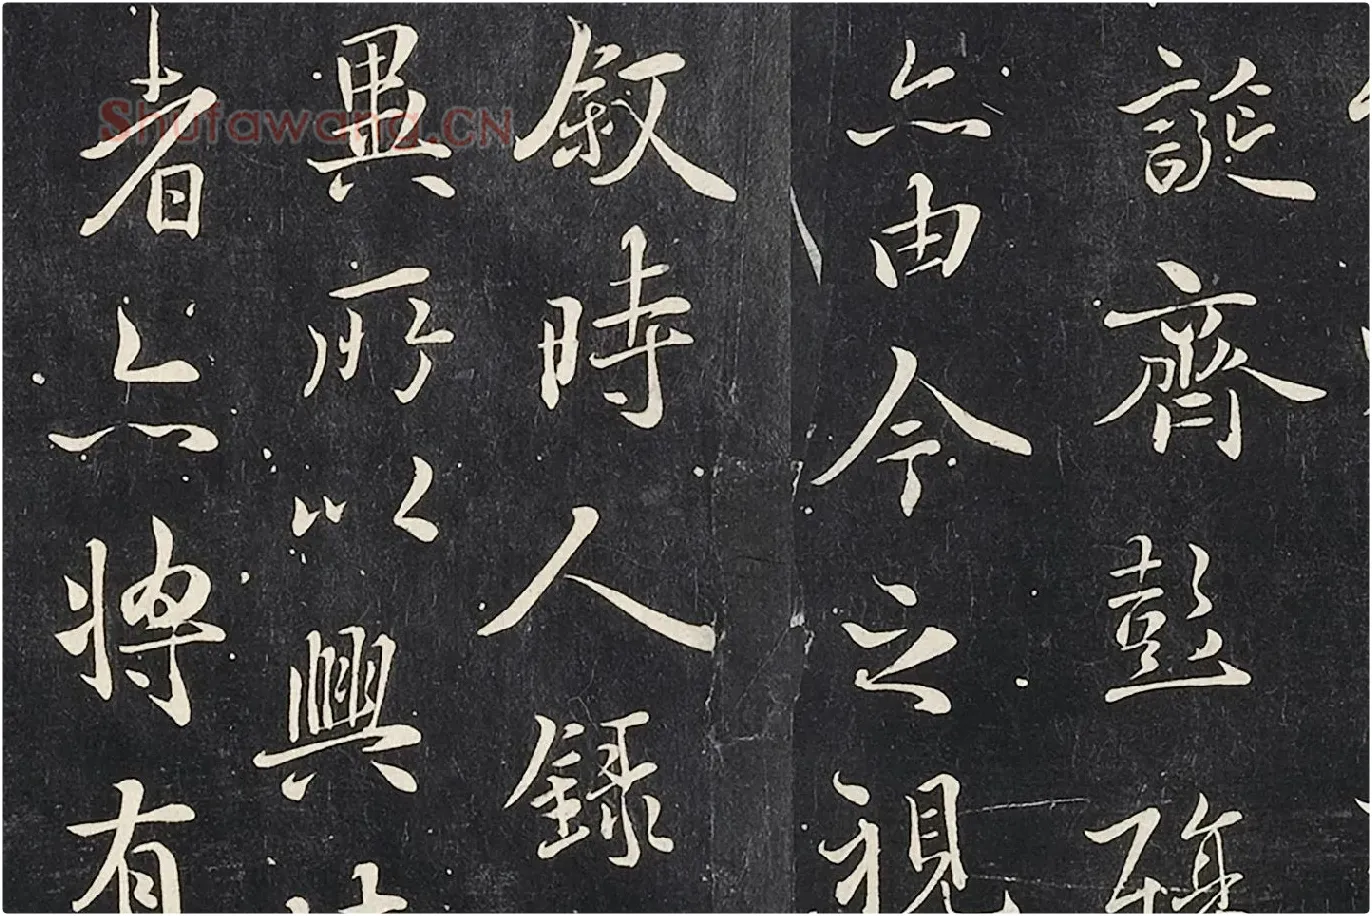 誕齊彭殤
亦由今之視
敘時人錄
異所以興
者亦將有
Shufawang.CN